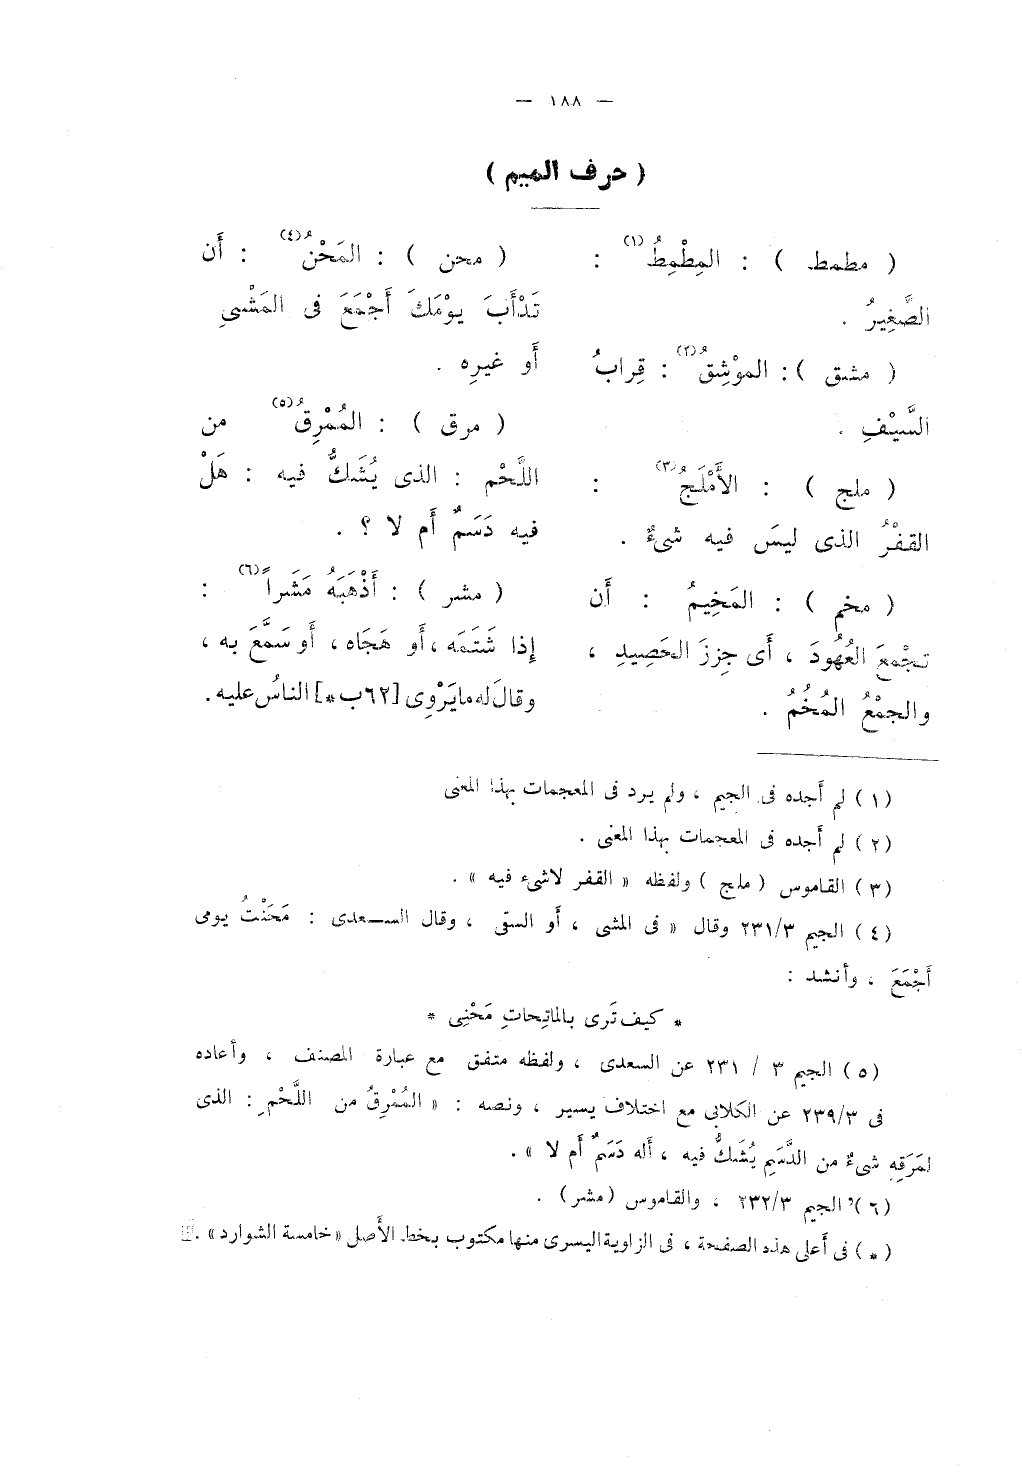 — ١٨٨ —
( حرف الميم )
( مطمط ) : المِطْمِطُ(١) :
الصَّغِيرُ .
( مشق ) : الموْشِقُ(٢) : قِرابُ
السَّيْفِ .
( ملج ) : الأَمْلَجُ(٣) :
القفْرُ الذى ليسَ فيه شىءٌ .
( مخم ) : المَخِيمُ : أَن
تجْمعَ العُهُودَ ، أَى جِززَ الحَصِيدِ ،
والجمْعُ المُخُمُ .
( محن ) : المَحْنُ(٤) : أَن
تَدْأَبَ يوْمَكَ أَجْمَعَ فى المَشْىِ
أَو غيرِه .
( مرق ) : المُمْرِقُ(٥) من
اللَّحْم : الذى يُشَكُّ فيه : هَلْ
فيه دَسَمٌ أَم لا ؟ .
( مشر ) : أَذْهَبَهُ مَشَراً(٦) :
إِذا شَتَمَه ، أَو هَجَاه ، أَو سَمَّعَ به ،
وقالَ له ما يَرْوِى [٦٢ب*] الناسُ عليه .
(١) لم أَجده فى الجيم ، ولم يرد فى المعجمات بهذا المعنى
(٢) لم أَجده فى المعجمات بهذا المعنى .
(٣) القاموس (ملج) ولفظه « القفر لاشىء فيه » .
(٤) الجيم ٢٣١/٣ وقال « فى المشى ، أَو السقى ، وقال السعدى : مَحَنْتُ يومى
أَجْمَعَ ، وأنشد :
* كيف تَرى بالماتِحاتِ مَحْنِى *
(٥) الجيم ٣ / ٢٣١ عن السعدى ، ولفظه متفق مع عبارة المصنف ، وأعاده
فى ٢٣٩/٣ عن الكلابى مع اختلاف يسير ، ونصه : « المُمْرِقُ من اللَّحْمِ : الذى
لمَرَقِهِ شىءٌ من الدَّسَمِ يُشَكُّ فيه ، أَله دَسَمٌ أَم لا » .
(٦) الجيم ٢٣٢/٣ ، والقاموس (مشر) .
(*) فى أَعلى هذه الصفحة ، فى الزاوية اليسرى منها مكتوب بخط الأَصل «خامسة الشوارد» .